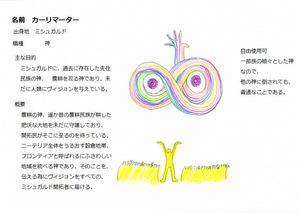 名前　カーリマーター
出身地　ミシュガルド
職種　　神
主な目的
ミシュガルドに、過去に存在した先住
民族の神。　農耕を司る神であり、未
だに人類にヴィジョンを与えている。
概要
農耕の神。遥か昔の農耕民族が耕した
肥沃な大地を未だに守護しており、
開拓民がそこに至るのを待っている。
ニーテリア全体をうるおす穀倉地帯、
フロンティアと呼ばれるにふさわしい
地域を統べる神であり、そのことを、
伝える為にヴィジョンをすべての、
ミシュガルド開拓者に届ける。
自由使用可
一部族の細々とした神
なので、
他の神に倒されても、
普通なことである。